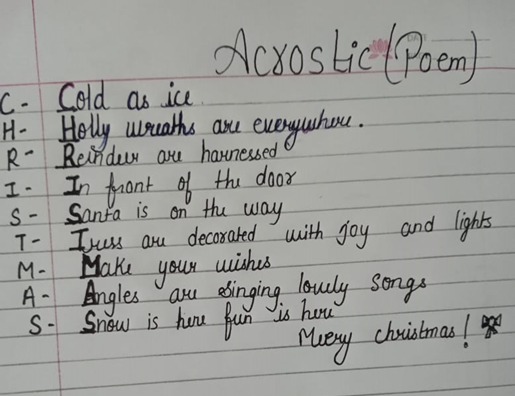 Acrostic (Poem)
C- Cold as ice
H- Holly wreaths are everywhere.
R- Reindeer are harnessed
I- In front of the door
S- Santa is on the way
T- Trees are decorated with joy and lights
M- Make your wishes
A- Angles are singing lovely songs
S- Snow is here fun is here
Merry christmas!